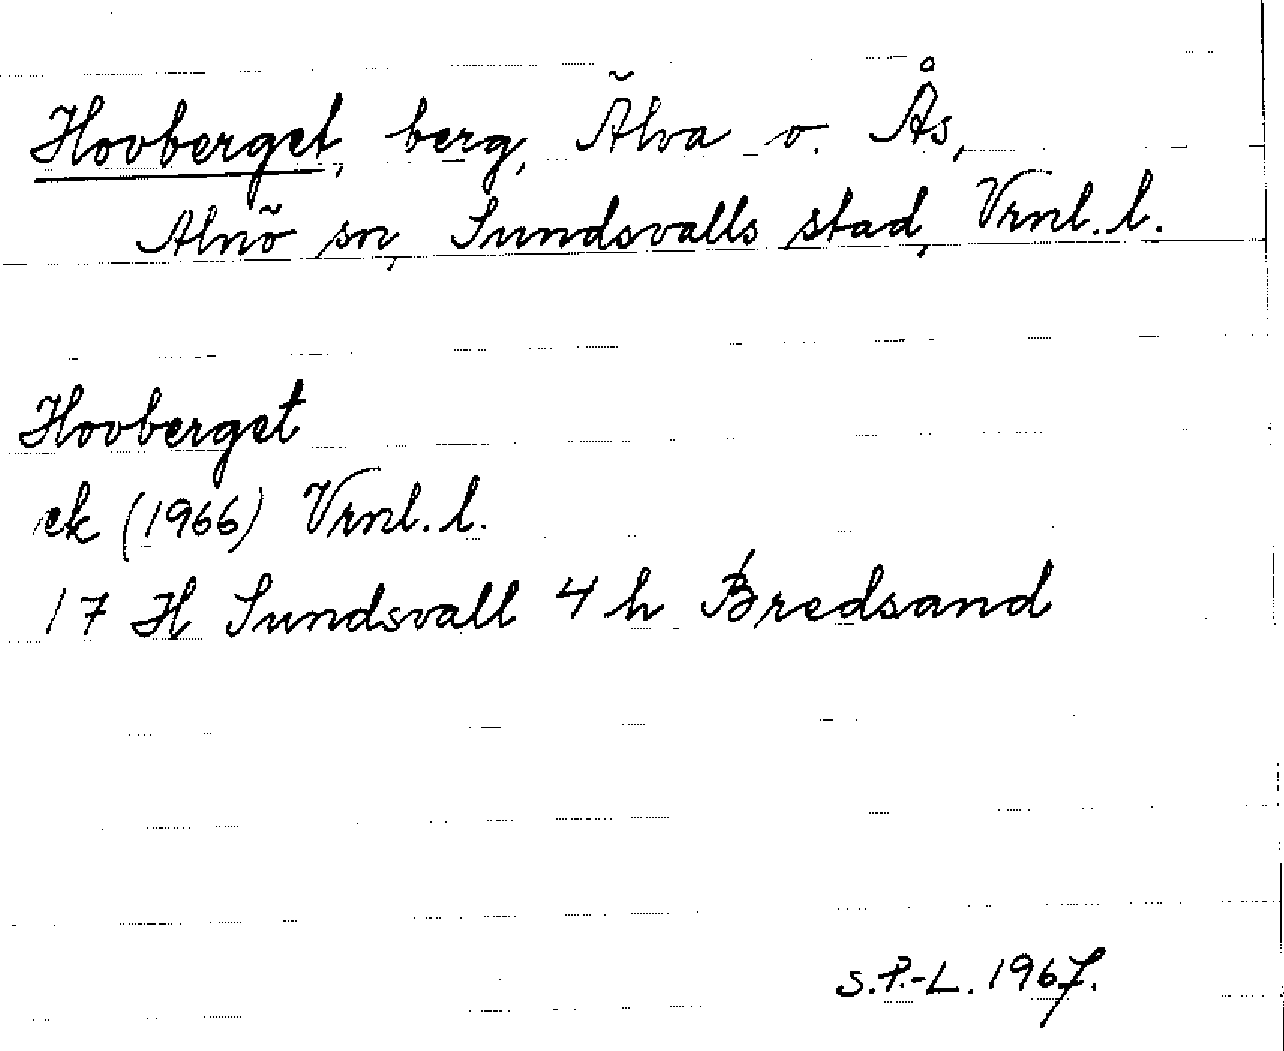 Hovberget, berg, Älva o. Ås,
Alnö sn, Sundsvalls stad, Vrnl. l.
Hovberget
ek (1966) Vrnl. l.
17 H Sundsvall 4 h Bredsand
S.P.-L. 1967.